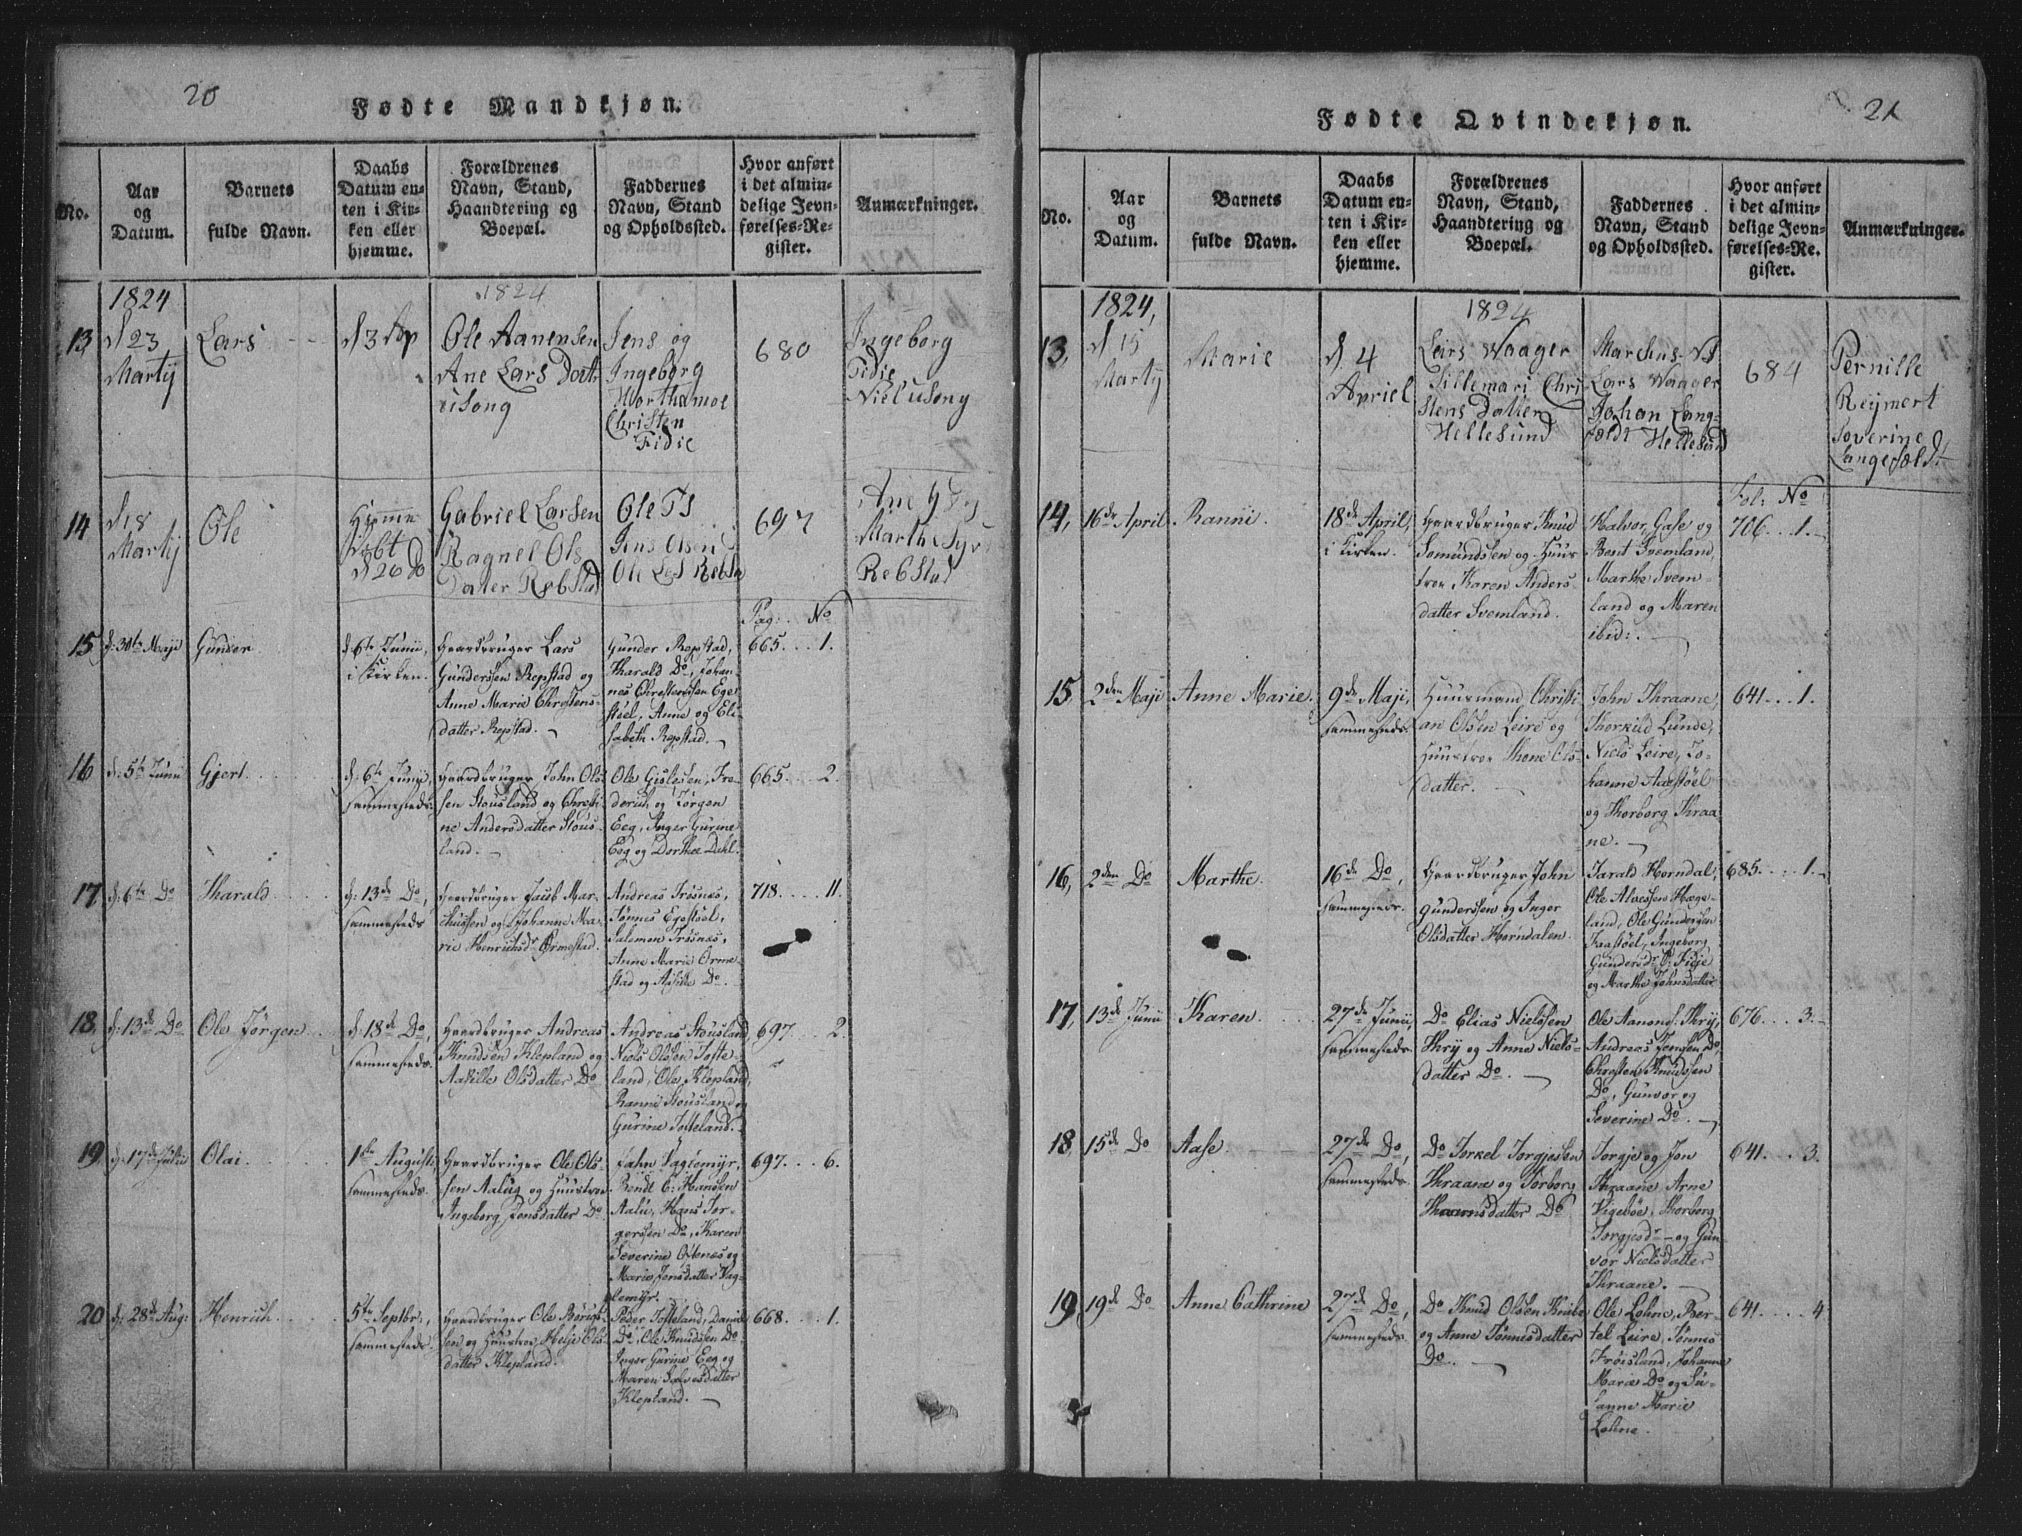 20
Fødte Mandkjøn.
No.
Aar
og
Datum.
Barnets
fulde Navn.
Daabs
Datum en-
ten i Kir-
ken eller
hjemme.
Forældrenes
Navn, Stand,
Haandtering og
Boepæl.
Faddernes
Navn, Stand
og Opholdssted.
Hvor anført
i det almin-
delige Jevn-
førelses-Re-
gister.
Anmærkninger.
1824
1824
13
d 23
Martÿ
Lars
d 3 Ap
Ole Aanensen
Ane Lars Dott
Jens og
Ingeborg
Christen
Fidie
680
Ingeborg
Fidie
14
d 18
Martÿ
Ole
Hiemme
Døbt
d 26 Do
Gabriel Larsen
Ragnel Ols
Datter Rebstad
Ole TS
Jens Olsen
697
Marthe
Rebstad
Pag: No
15
d: 30te Maji
Gunder
d: 6te Junii,
i Kirken.
Gaardbruger Lars
Gunderssen Repstad og
Anne Marie Christens-
datter Repstad.
Gunder Repstad,
Tharald Do, Johan-
nes Christenssen Ege-
støel, Anne og Eli-
sabeth Repstad.
665. . . 1.
16
d: 5te Junii
Gjert
d: 6te Junii,
sammesteds.
Gaardbruger John Ols-
sen Stousland og Christi-
ne Andersdatter Stous-
land.
Ole Gislesen, Fre-
derich og Jørgen
Eeg, Inger Gurine
Eeg og Dorthea Dahl.
665. . . 2.
17
d: 6te Do
Tharald
d: 13de Do,
sammesteds.
Gaardbruger Jacob Mar-
cussen og Johanne Ma-
rie Henrichsdr Ormestad.
Andreas Trøsnæs,
Tønnes Egestøel,
Salomon Trøsnæs,
Anne Marie Orme-
stad og Assille Do.
718. . . 11.
18
d: 13de Do
Ole Jørgen
d: 18de Do,
sammesteds.
Gaardbruger Andreas
Knudsen Klepland og
Aasille Olsdatter Do
Andreas Stousland,
Niels Olsen Tofte-
land, Ole Klepland,
Ranni Stousland og
Gurine Tofteland.
697. . . 2.
19
d: 17de Julii
Olai
1ste Augusti,
sammesteds.
Gaardbruger Ole Ols-
sen Aalug og Huustroe
Ingeborg Jensdatter Do
Jahn Vaglemyr,
Bendt C: Hansen
Aalu, Hans Jør-
gersen Do, Karen
Severine Østenæs og
Marie Jensdatter Vag-
lemyr.
697. . . 6.
20
d: 28de Aug:
Henrich
5te Septbr:,
sammesteds.
Gaardbruger Ole Børuf-
sen og Huustroe Helje Ols-
datter Klepland.
Peder Tofteland, Daniel
Do, Ole Knudssen Do,
Inger Gurine Eeg og
Maren Salvesdatter
Klepland.
668. . . 1.
21
Fødte Qvindekjøn.
No.
Aar
og
Datum.
Barnets
fulde Navn.
Daabs
Datum en-
ten i Kir-
ken eller
hjemme.
Forældrenes
Navn, Stand,
Haandtering og
Boepæl.
Faddernes
Navn, Stand
og Opholdssted.
Hvor anført
i det almin-
delige Jevn-
førelses-Re-
gister.
Anmærkninger.
1824,
1824
13,
d 15
Martÿ
Marie
d. 4
Apriel
Leirs Waager
Sillemari Chri
stens Datter
Hellesund
Marchus
Lars Waager
Johan Lang-
fældt Hellesund
684
Pernille
Reijmert
Soverine
Langefældt
Fol: No
14,
16de April
Ranni.
18de April,
i Kirken.
Gaardbruger Knud
Somundssen og Huus-
troe Karen Anders-
datter Svemland.
Halvor Gase og
Bent Svemland,
Marthe Svem-
land og Maren
ibid:.
706. . . 1.
15,
2den Maji
Anne Marie.
9de Maji,
sammesteds.
Huusmand Christi-
an Olsen Leire og
Huustroe Thone Ols-
datter.
John Thraane,
Thorkild Lunde,
Niels Leire, Jo-
hanne Aaestøel
og Thorborg Thraa-
ne.
641. . . 1.
16,
2den Do
Marthe.
16de Do,
sammesteds.
Gaardbruger John
Gunderssen og Inger
Olsdatter Horndalen.
Tarald Horndal,
Ole Alvessen Hæge-
land, Ole Gundersen
Faastøel, Ingeborg
Gundersdr O: Fidje
og Marthe Johnsdatter
685. . . 1.
17,
13de Junii
Karen.
27de Junii,
sammesteds.
Do Elias Nielssen
Thrÿ og Anne Niels-
datter Do.
Ole Aanonds: Thrÿ,
Andreas Jensen Do,
Christen Knudssen
Do, Gunvor og
Severine Do.
676. . . 3.
18
15de Do
Aase
27de Do,
sammesteds.
Do Torkel Torgjesen
Thraane og Torborg
Haarnsdatter Do
Torgje og Jon
Thraane Arne
Vigebøe, Thorborg
Torgjesdr og Gun-
vor Nielsdatter
Thraane.
641. . . 3.
19,
19de Do
Anne Cathrine
27de Do,
sammesteds.
Do Knud Olsen Knibe
og Anne Tønnesdatter
Do.
Ole Lohne, Ber-
tel Leire, Tønnes
Frøisland, Johanne
Marie Do og Su-
sanne Marie
Lohne.
641. . . 4